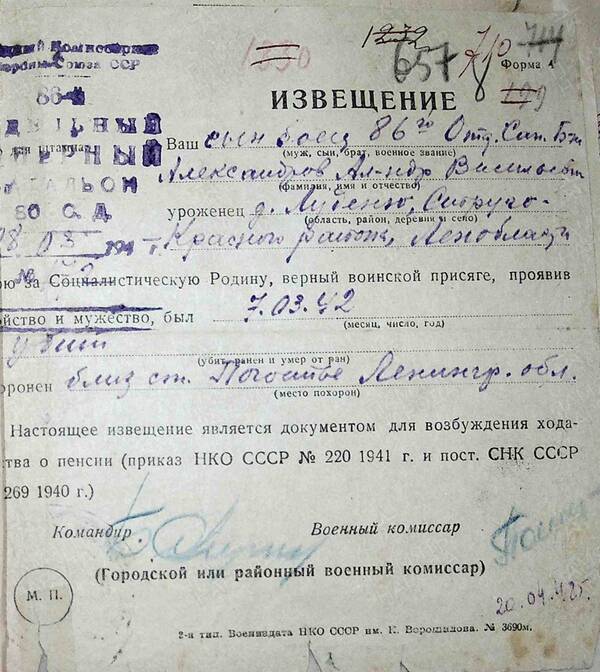 1272
657
710
Форма 4
86
ИЗВЕЩЕНИЕ
Ваш сын боец 86го Отд. Сап. Б-на
(муж, сын, брат, военное звание)
Александров Ал-ндр Васильевич
(фамилия, имя и отчество)
80 С.Д.
уроженец д.
(область, район, деревня и село)
Красного района, Ленобласти
за Социалистическую Родину, верный воинской присяге, проявив
и мужество, был 7.03.42
(месяц, число, год)
убит
(убит, ранен и умер от ран)
близ ст. Погостье Ленингр. обл.
(место похорон)
Настоящее извещение является документом для возбуждения хода-
тва о пенсии (приказ НКО СССР № 220 1941 г. и пост. СНК СССР
269 1940 г.)
Командир
Военный комиссар
(Городской или районный военный комиссар)
М. П.
2-я тип. Воениздата НКО СССР им. К. Ворошилова. № 3690м.